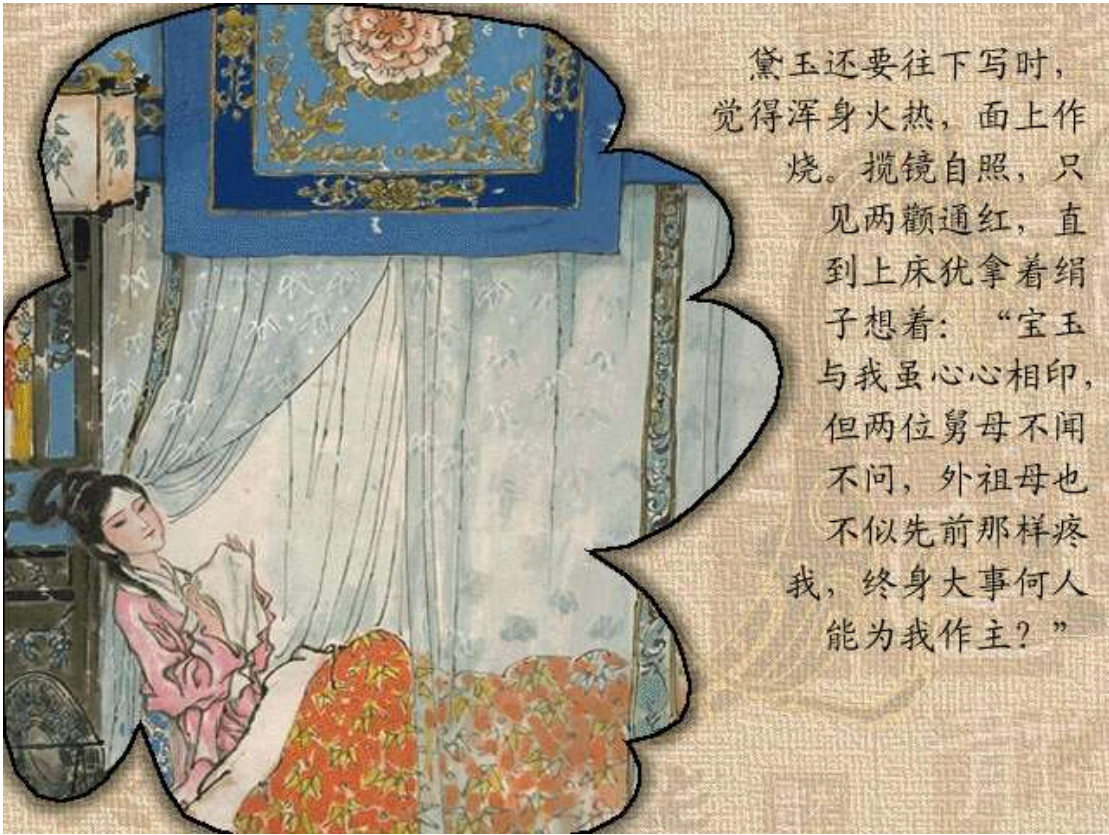 黛玉还要往下写时，
觉得浑身火热，面上作
烧。揽镜自照，只
见两颧通红，直
到上床犹拿着绢
子想着：“宝玉
与我虽心心相印，
但两位舅母不闻
不问，外祖母也
不似先前那样疼
我，终身大事何人
能为我作主？”